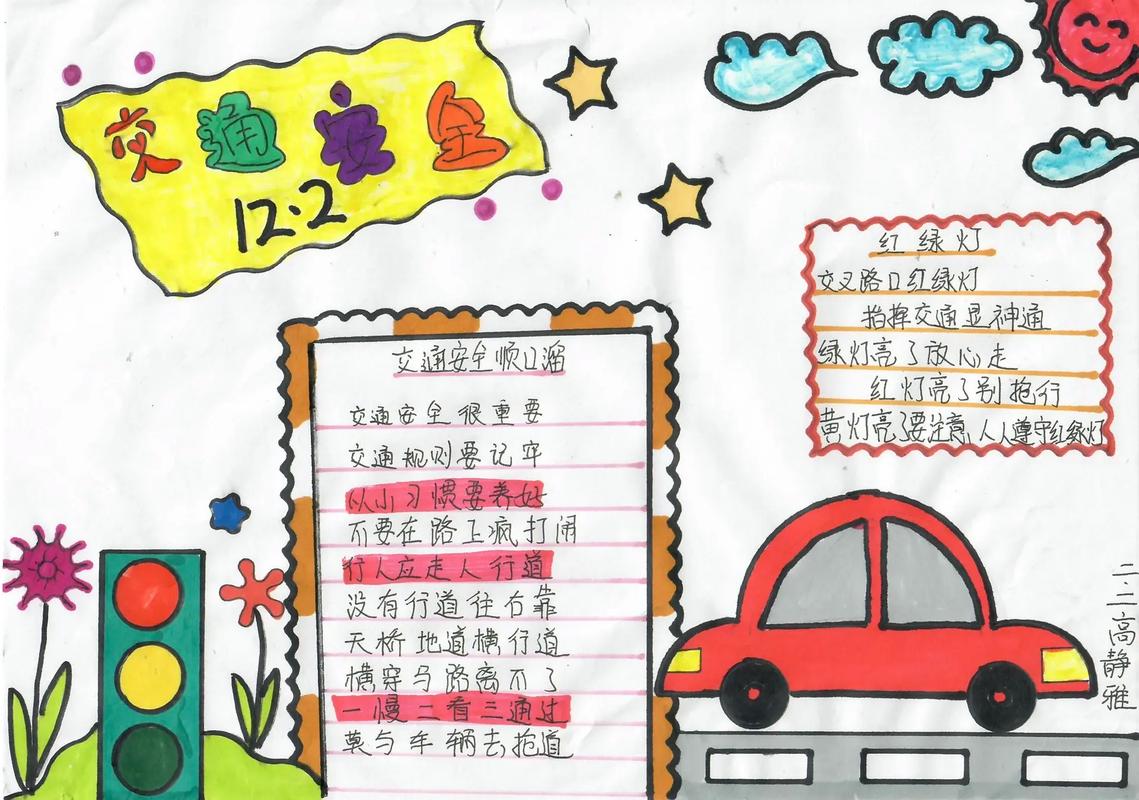 交通安全
12·2
交通安全顺口溜
交通安全很重要
交通规则要记牢
从小习惯要养好
不要在路上疯打闹
行人应走人行道
没有行道往右靠
天桥地道横行道
横穿马路离不了
一慢二看三通过
莫与车辆去抢道
红绿灯
交叉路口红绿灯
指挥交通显神通
绿灯亮了放心走
红灯亮了别抢行
黄灯亮了要注意,人人遵守红绿灯
二.二高静雅